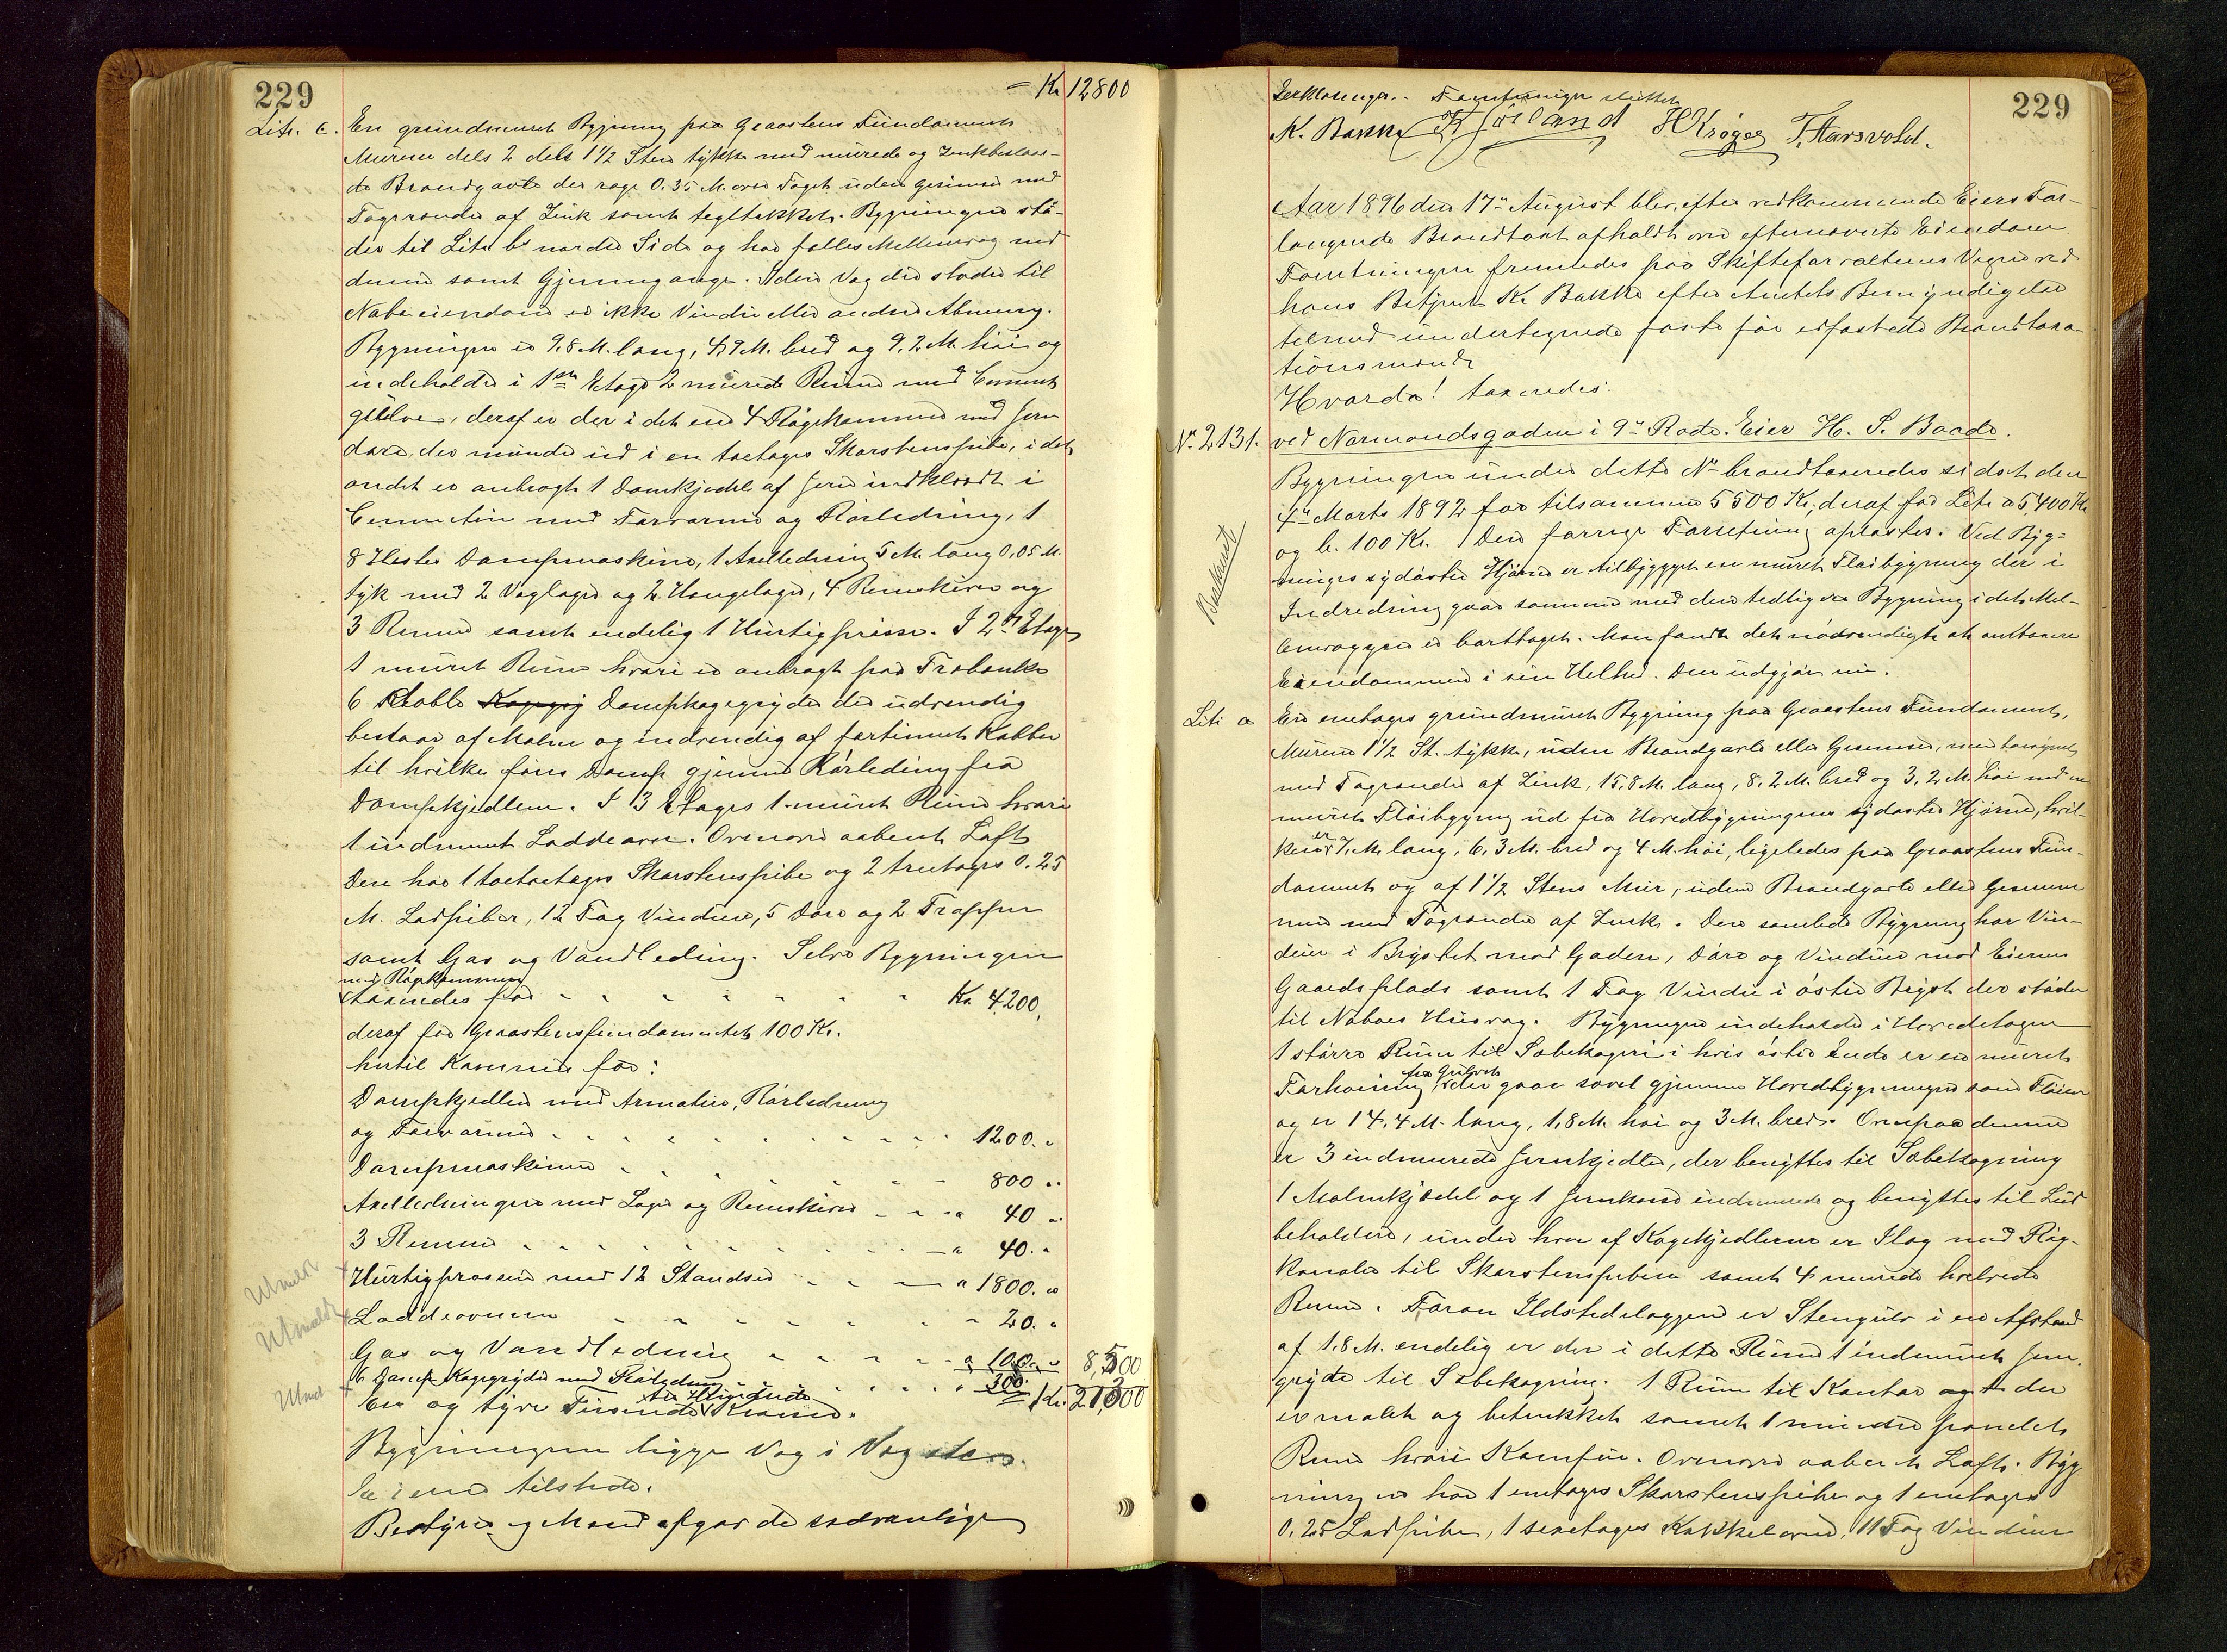 229
= Kr 12800
Litr. c. En grundmuret Bygning paa Graastens Fundament
Murene dels 2 dels 1 1/2 Sten tykke med murede og Zinkbeslaae-
de Brandgavle der rage 0.35 M. over Taget uden Gesimser med
Tagrender af Zink samt tegltækket. Bygningen stö-
der til Litr b's nordre Side og har fælles Mellemvæg med
denne samt Gjennemgange. I den Væg der støder til
Naboeiendom er ikke Vindu eller anden Abning.
Bygningen er 9.8 M. lang, 4,9 M. bred og 9.2 M. höi og
indeholder i 1ste Etage 2 murede Rum med Cement
gulve, deraf er der i det ene 4 Røgekammere med Jern
døre, der munde ud i en toetages Skorstenspibe, i det
andet er anbragt 1 Dampkjedel af Jern indklædt i
Cement med Forvarmer og Rørledning, 1
8 Hestes Dampmaskine, 1 Axelledning 5 M. lang 0,05 M.
tyk med 2 Væglager og 2 Hængelager, 4 Remskiver og
3 Remme samt endelig 1 Hurtigpresse. I 2den Etage
1 muret Rum hvori er anbragt paa Træbænke
6 doble Dampkogegryder der udvendig
bestaar af Malm og indvendig af fortinnet Kobber
til hvilke føres Damp gjennem Rørledning fra
Dampkjedlen. I 3 Etages 1 muret Rum hvori
1 indmuret Loddeovn. Ovenover aabent Loft
Den har 1 toetages Skorstenspibe og 2 treetages 0.25
M. Lodpiber, 12 Fag Vinduer, 5 Døre og 2 Trapper
samt Gas og Vandledning. Selve Bygningen
med Røgekammere
taxeredes for " " " " " " Kr. 4,200,
deraf for Graastensfundamentet 100 Kr.
hertil kommer for:
Dampkjedlen med Armatur, Rørledning
og Forvarmer " " " " " " 1200. "
Dampmaskinen " " " " " 800 "
Axelledningen med Lager og Remskiver " " 40 "
3 Remme " " " " " " " 40. "
Hurtigpressen med 12 Standser " " " 1800. "
Loddeovnen " " " " " " 20. "
Gas og Vandledning " " " " " 100. " 8,500
6 Damp Kogegryder med Rørledning " " " 300.
Kr. 21,300
En og tyve Tusinde tre Hundrede Kroner.
Bygningerne ligge Væg i Væg
Eieren tilstede.
Bestyrer og Mænd afgav de sædvanlige
Utmeldt
Utmeldt
Utmel
229
Erklæringer. Forretningen sluttet
K. Bakke K Jøsland H Krøger T. Aarsvold.
Aar 1896 den 17de August blev efter vedkommende Eiers For-
langende Brandtaxt afholdt over efternævnte Eiendom
Forretningen fremmedes paa Skifteforvalterens Vegne ved
hans Betjent K. Bakke efter Amtets Bemyndigelse
tilmed undertegnede faste før edfæstede Brandtaxa-
tionsmænd
Hvorda! taxeredes:
No 2131. ved Normandsgaden i 9de Rode. Eier H. S. Baade.
Bygningen under dette No brandtaxeredes sidst den
4de Marts 1892 for tilsammen 5500 Kr, deraf for Litr a 5,400 Kr
og b. 100 Kr. Den forrige Forretning oplæstes. Ved Byg-
ningens sydøstre Hjørne er tilbygget en muret Fløibygning der i
Indredning gaar sammen med den tidligere Bygning idet Mel-
lemvæggen er borttaget. Man fandt det nødvendigt at omtaxere
Eiendommen i sin Helhed. Den udgjør nu.
Beskrivet
Litr a En enetages grundmuret Bygning paa Graastens Fundament,
Murene 1 1/2 St. tykke, uden Brandgavle eller Gesimser, men
med Tagrender af Zink, 15,8 M. lang, 8,2 M. bred og 3,2 M. høi med en
muret Fløibygning ud fra Hovedbygningens sydøstre Hjørne, hvil-
ken er 7 M. lang, 6,3 M. bred og 4 M. höi, ligeledes paa Graastens Fun-
dament og af 1 1/2 Stens Mur, uden Brandgavle eller Gesimser
men med Tagrender af Zink. Den samlede Bygning har Vin-
duer i Brystet mod Gaden, Døre og Vinduer mod Eierens
Gaardsplads samt 1 Fag Vindu i østre Bryst der støder
til Naboes Husvæg. Bygningen indeholder i Hovedetagen
1 større Rum til Sæbekogeri i hvis østre Ende er en muret
Forhøining fra Gulvet der gaar saavel gjennem Hovedbygningen som Fløien
og er 14,4 M. lang, 1,8 M. høi og 3 M. bred. Ovenpaa denne
er 3 indmurede Jernkjedler, der benyttes til Sæbekogning
1 Malmkjedel og 1 Jernkasse indmurede og benyttes til Lud
beholdere, under hver af Kogekjedlerne er Ilæg med Røg-
kanaler til Skorstenspiben samt 4 murede hvelvede
Rum. Foran Ildstedslæggene er Stengulv i en Afstand
af 1,8 M. endelig er der i dette Rum 1 indmuret Jern-
gryde til Sæbekogning. 1 Rum til Kontor der
er malet og betrukket samt 1 mindre panelet
Rum hvori Komfur. Ovenover aabent Loft. Byg
ningen har 1 enetages Skorstenspibe og 1 enetages
0.25 Lodpibe, 1 Kakkelovn, 11 Fag Vinduer